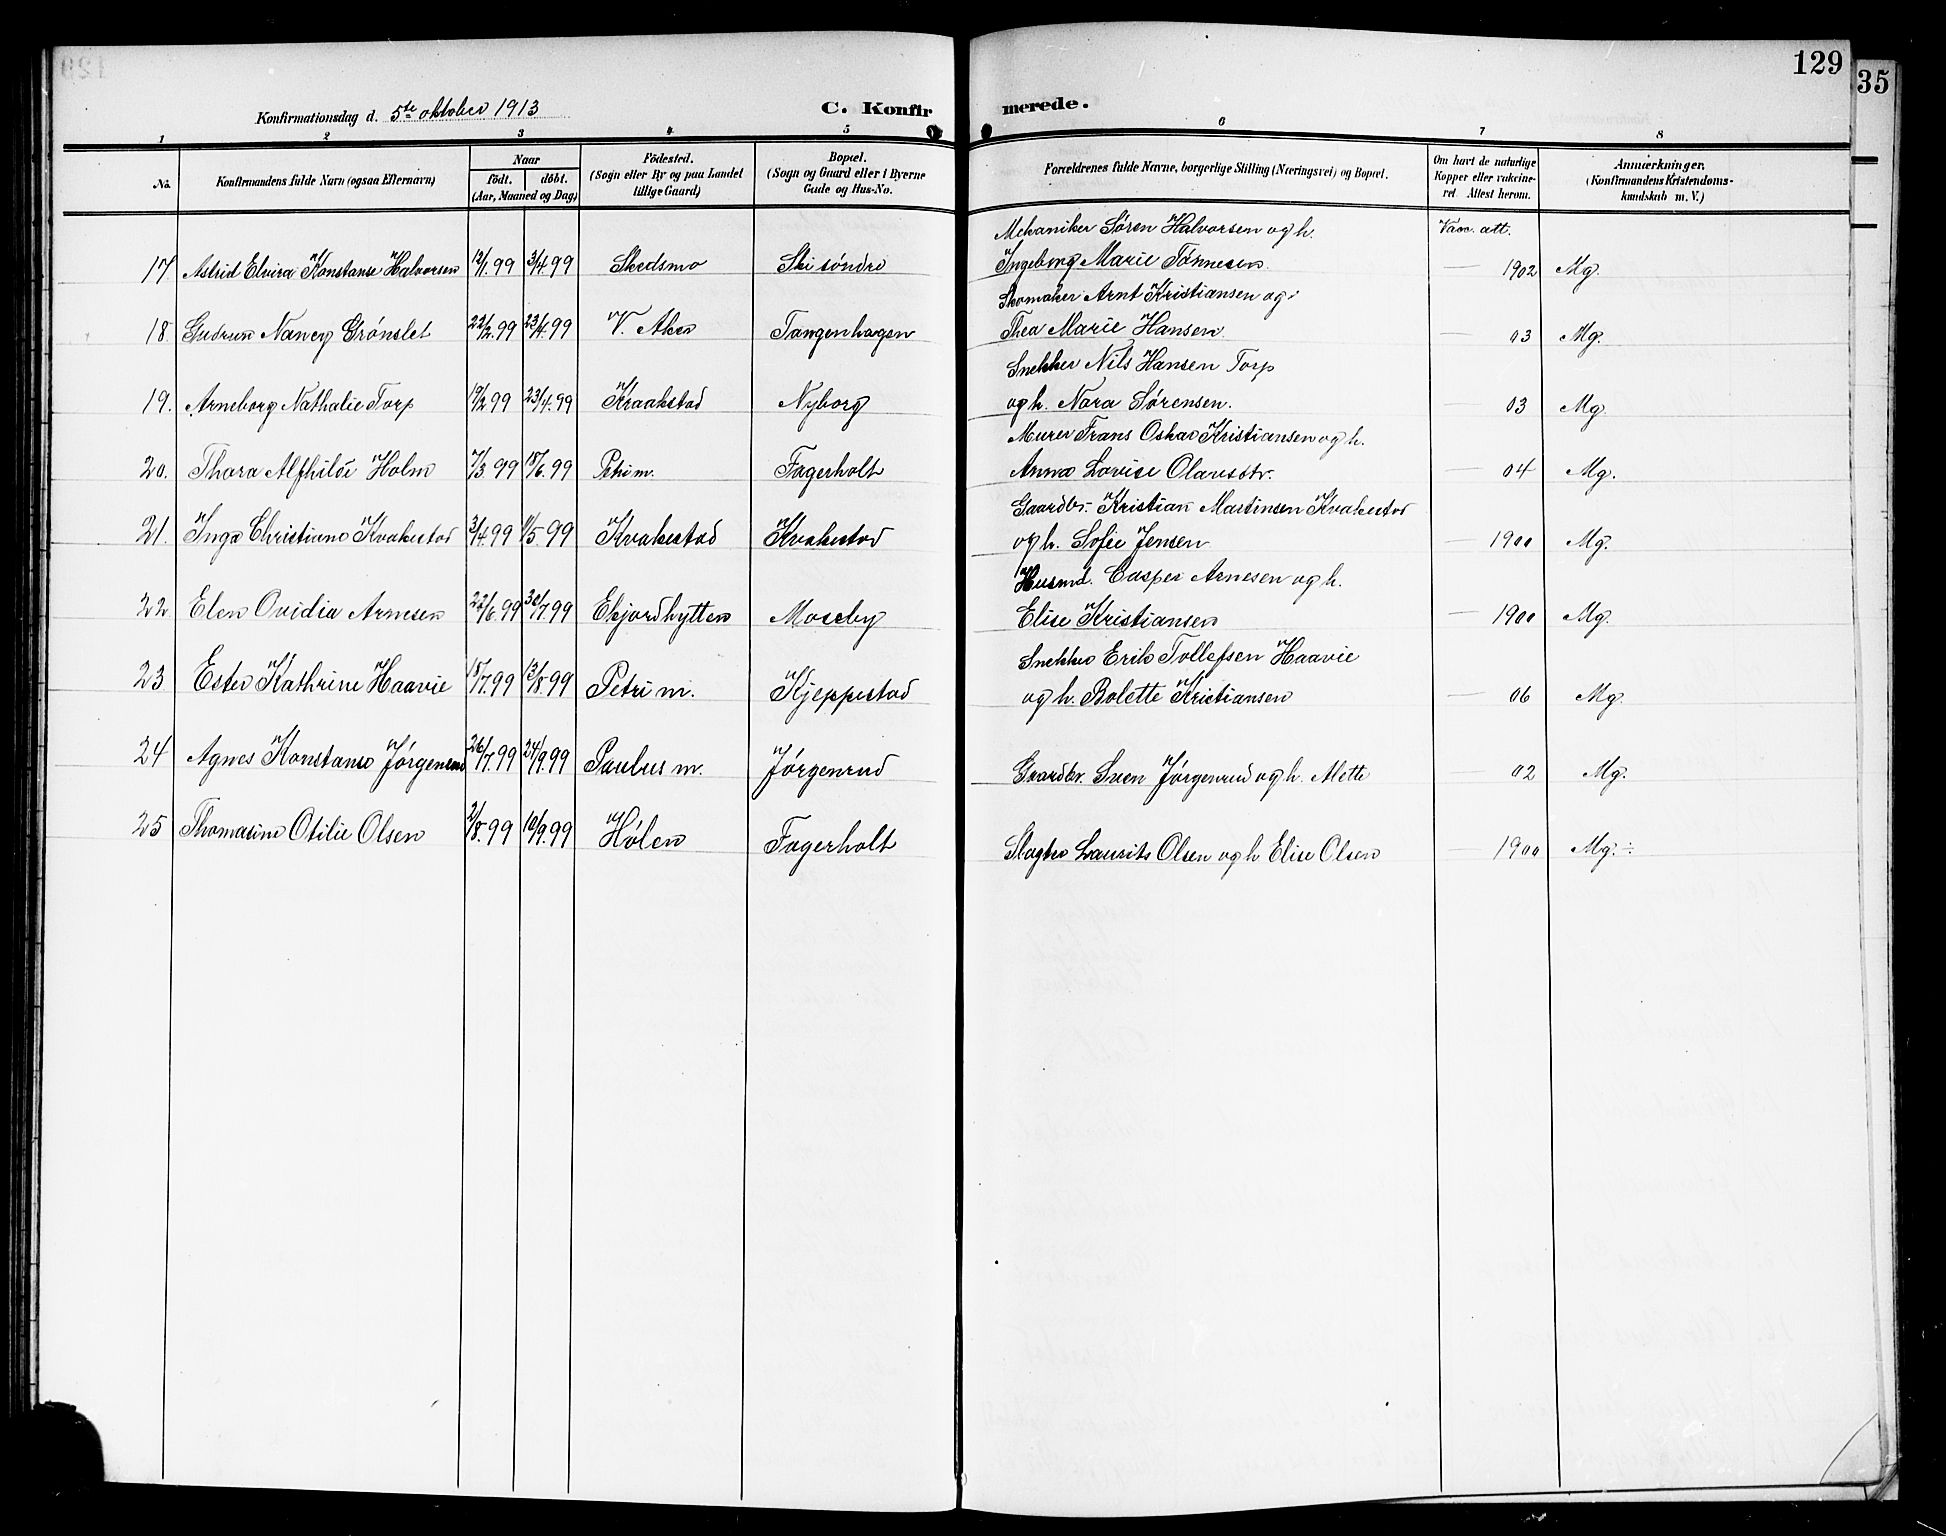 129
35
Konfirmationsdag d. 5te oktober 1913 C. Konfirmerede.
1 2 3 4 5 6 7 8
No. Konfirmandens fulde Navn (ogsaa Efternavn) Naar födt. döbt. (Aar, Maaned og Dag) Födested. (Sogn eller By og paa Landet tillige Gaard) Bopæl. (Sogn og Gaard eller i Byerne Gade og Hus-No. Forældrenes fulde Navne, borgerlige Stilling (Næringsvei) og Bopæl. Om havt de naturlige Kopper eller vakcineret. Attest herom. Anmærkninger. (Konfirmandens Kristendomskundskab m. V.)
Mekaniker Søren Halvorsen og h. Vacc. att.
17. Astrid Elvira Konstanse Halvorsen 12/1.99 3/4 99 Skedsmo Ski søndre Ingeborg Marie Tønnesen — 1902 Mg.
Skomaker Arnt Kristiansen og
18. Gudrun Nancy Grønslet 22/2.99 23/4.99 V. Aker Tangenhagen Thea Marie Hansen — 03 Mg.
Snekker Nils Hansen Torp
19. Arneborg Nathalie Torp 19/2 99 23/4.99 Kraakstad Nyborg og h. Nora Sørensen. — 03 Mg.
Murer Frans Oskar Kristiansen og h.
20. Thora Alfhilde Holm 7/3 99 18/6.99 Petri m. Fagerholt Anna Lovise Olausdtr. — 04 Mg.
Gaardbr. Kristian Martinsen Kvakestad
21. Inga Christiane Kvakestad 3/4.99 11/5.99 Kvakestad Kvakestad og h. Sofie Jensen — 1900 Mg.
Husmd. Casper Arnesen og h.
22. Elen Ovidia Arnesen 22/6.99 30/7.99 Ekjordhytten Moseby Elise Kristiansen — 1900 Mg.
Snekker Erik Tollefsen Haavie
23 Ester Kathrine Haavie 18/7.99 13/8.99 Petri m. Kjeppestad og h. Bolette Kristiansen — 06 Mg
24 Agnes Konstanse Jørgensrud 26/7.99 24/9.99 Paulus m. Jørgenrud Gaardbr. Sven Jørgenrud og h. Mette — 02 Mg.
25 Thomasine Otilie Olsen 2/8.99 10/9.99 Hølen Fagerholt Slagter Laurits Olsen og h Elise Olsen — 1900 Mg. ÷